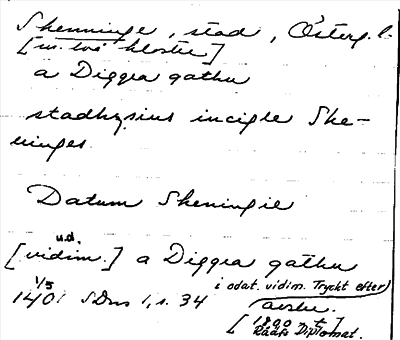 Skenninge, stad, Österg.l.
[m. två kloster]
a Diggra gathu
stadhzsins incigle Ske-
ninges.
Datum Skeningie
u.d.
[vidim.] a Diggra gathu
i odat. vidim. Tryckt efter)
1/5
1401 SDns 1, s. 34
avskr.
[1800 t]
Rääfs Diplomat.